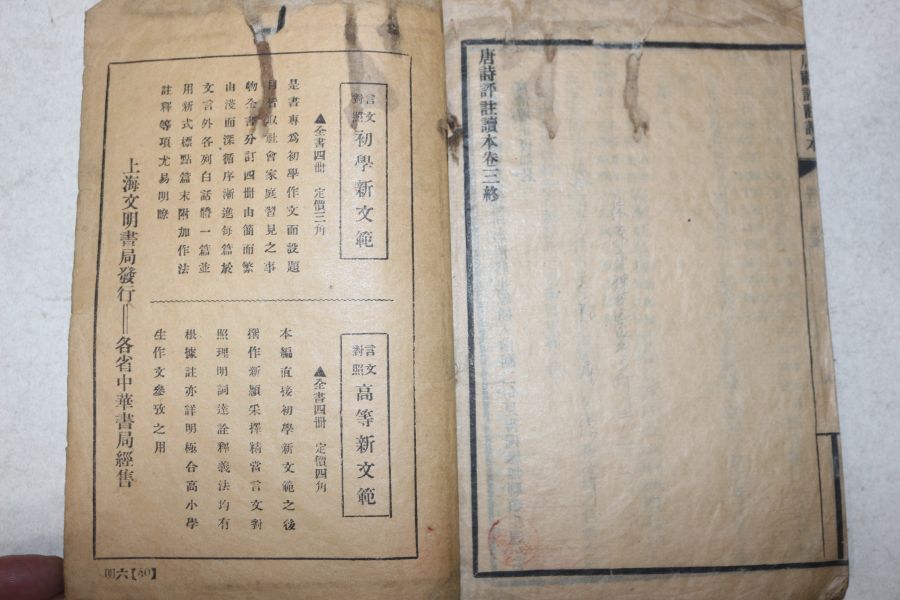 唐詩評註讀本
唐詩評註讀本卷三終
言文
對照
初學新文範
▲全書四冊　定價三角
是書專爲初學作文而設題
目皆取社會家庭習見之事
物全書分訂四冊由簡而繁
由淺而深循序漸進每篇於
文言外各列白話體一篇並
用新式標點篇末附加作法
註釋等項尤易明瞭
言文
對照
高等新文範
▲全書四冊　定價四角
本編直接初學新文範之後
撰作新穎采擇精當言文對
照理明詞達詮釋義法均有
根據註亦詳明極合高小學
生作文參攷之用
上海文明書局發行══各省中華書局經售
明六【80】